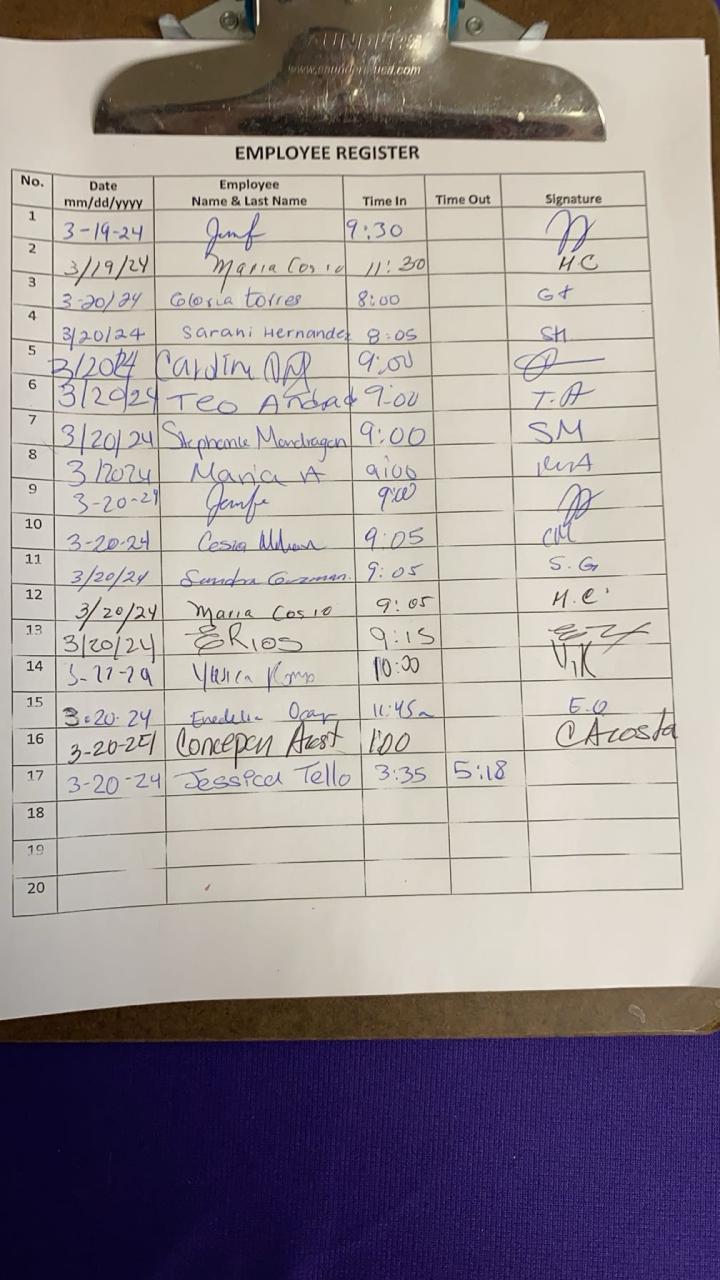 SAUNDERS
EMPLOYEE REGISTER
No. Date mm/dd/yyyy Employee Name & Last Name Time In Time Out Signature
1 3-19-24 9:30
2 3/19/24 Maria Cosio 11:30 M C
3 3-20/24 Gloria torres 8:00 Gt
4 3/20/24 Sarahi Hernandez 8:05 SH
5 3/2024 9:00
6 3/20/24 Teo Andrad 9:00 T.A
7 3/20/24 Stephanie Mondragon 9:00 SM
8 3/2024 Maria A 9:00
9 3-20-24 9:00
10 3-20-24 Cesia 9:05 CM
11 3/20/24 Sandra Guzman. 9:05 S.G
12 3/20/24 Maria Cosio 9:05 M.C.
13 3/20/24 E Rios 9:15
14 10:00
15 3-20-24 Enedelia 11:45a E.O
16 3-20-24 1:00 C Acosta
17 3-20-24 Jessica Tello 3:35 5:18
18
19
20